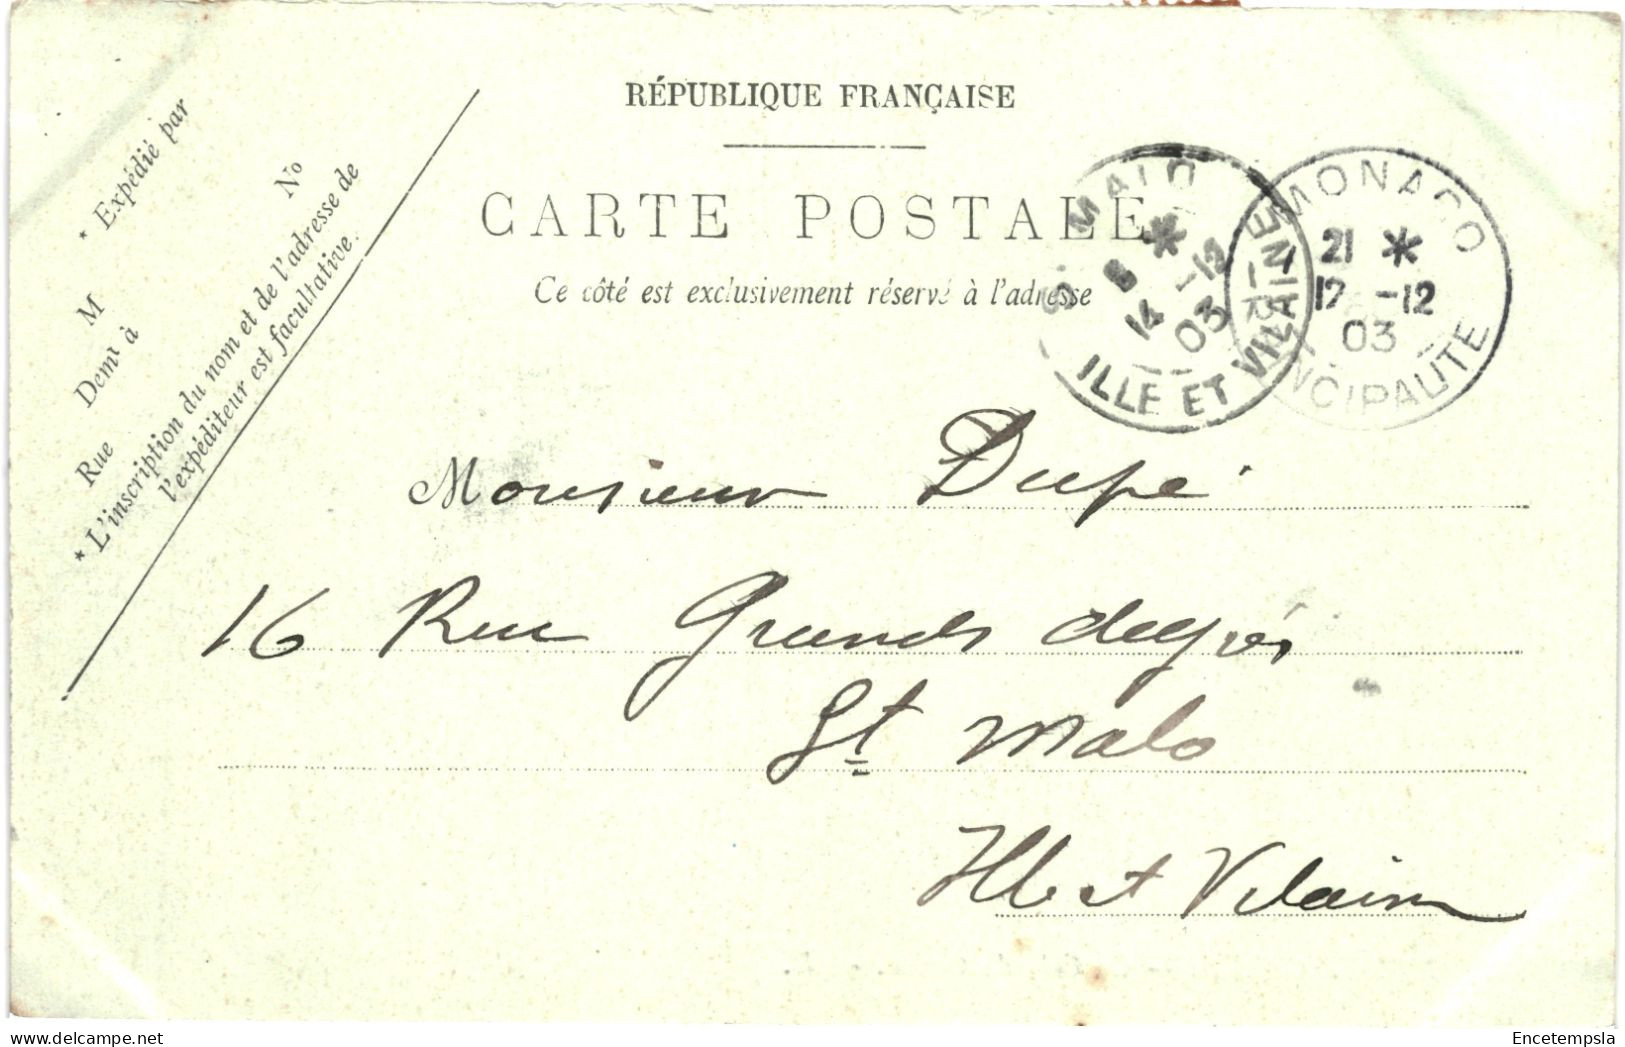 RÉPUBLIQUE FRANÇAISE
CARTE POSTALE
Ce côté est exclusivement réservé à l'adresse
* Expédié par
M
Demt à
Rue
No
* L'inscription du nom et de l'adresse de
l'expéditeur est facultative.
MALO
* 14 -12
03
ILLE ET VILAINE
MONACO
21 *
12 -12
03
PRINCIPAUTE
Monsieur Dupé
16 Rue Grands degrés
St Malo
Ille et Vilaine
Encetempsla